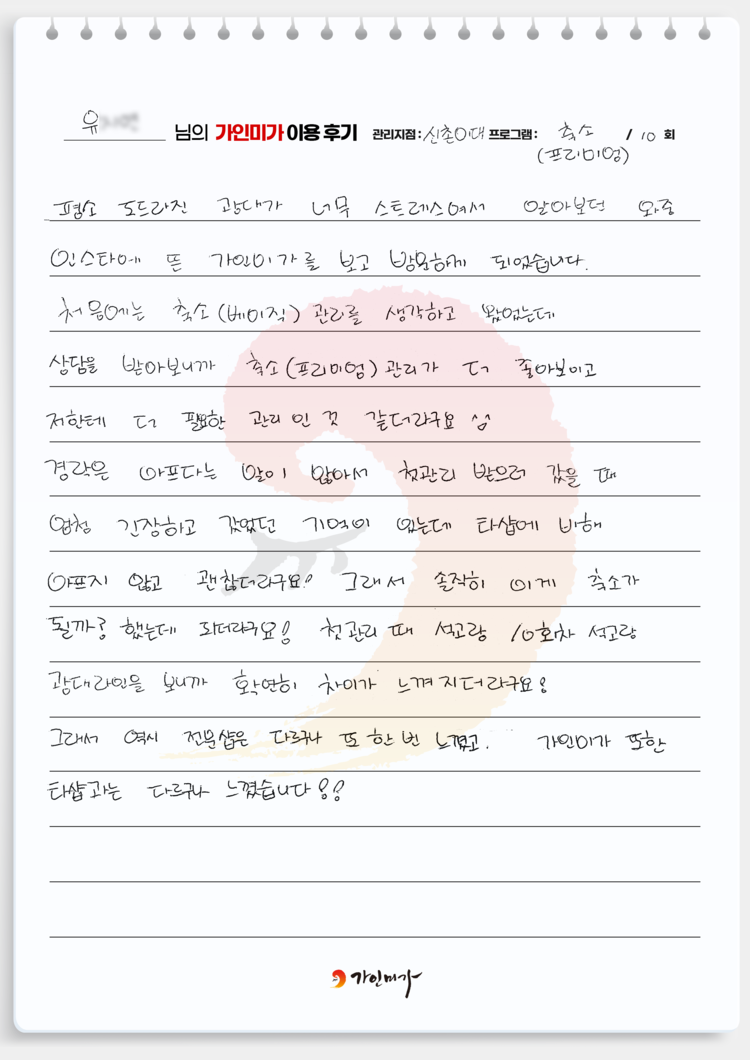 유
님의 가인미가 이용 후기 관리지점 : 신촌이대 프로그램 : 축소 / 10 회
(프리미엄)
평소 도드라진 광대가 너무 스트레스여서 알아보던 와중
인스타에 뜬 가인미가를 보고 방문하게 되었습니다.
처음에는 축소(베이직) 관리를 생각하고 왔었는데
상담을 받아보니까 축소(프리미엄) 관리가 더 좋아보이고
저한테 더 필요한 관리인 것 같더라구요
경락은 아프다는 말이 많아서 첫관리 받으러 갔을 때
엄청 긴장하고 갔었던 기억이 있는데 타샵에 비해
아프지 않고 괜찮더라구요! 그래서 솔직히 이게 축소가
될까? 했는데 되더라구요! 첫관리 때 석고랑 10회차 석고랑
광대라인을 보니까 확연히 차이가 느껴지더라구요!
그래서 역시 전문샵은 다르구나 또 한 번 느꼈고. 가인미가 또한
타샵과는 다르구나 느꼈습니다!!
가인미가